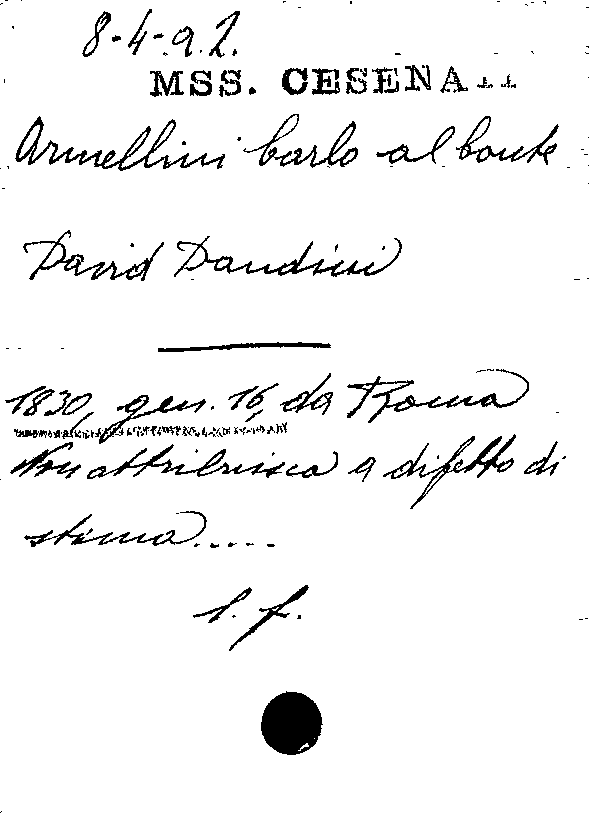 8-4-9.2.
MSS. CESENA
Armellini Carlo al Conte
David Dandini
1830, gen. 16, da Roma
Non attribuisca a difetto di
stima.....
l. f.